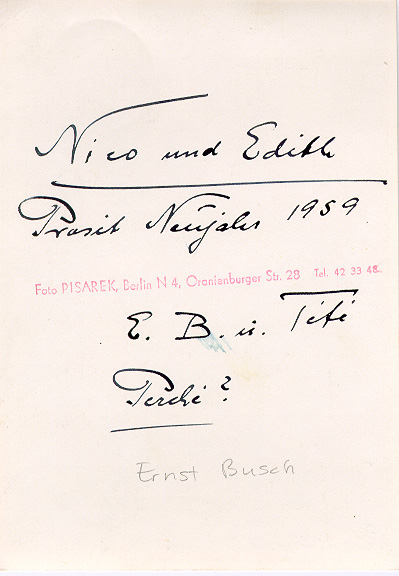 Nico und Edith
Prosit Neujahr 1959
Foto PISAREK, Berlin N 4, Oranienburger Str. 28 Tel. 42 33 48
E. B. u. Titi
Perchi?
Ernst Busch